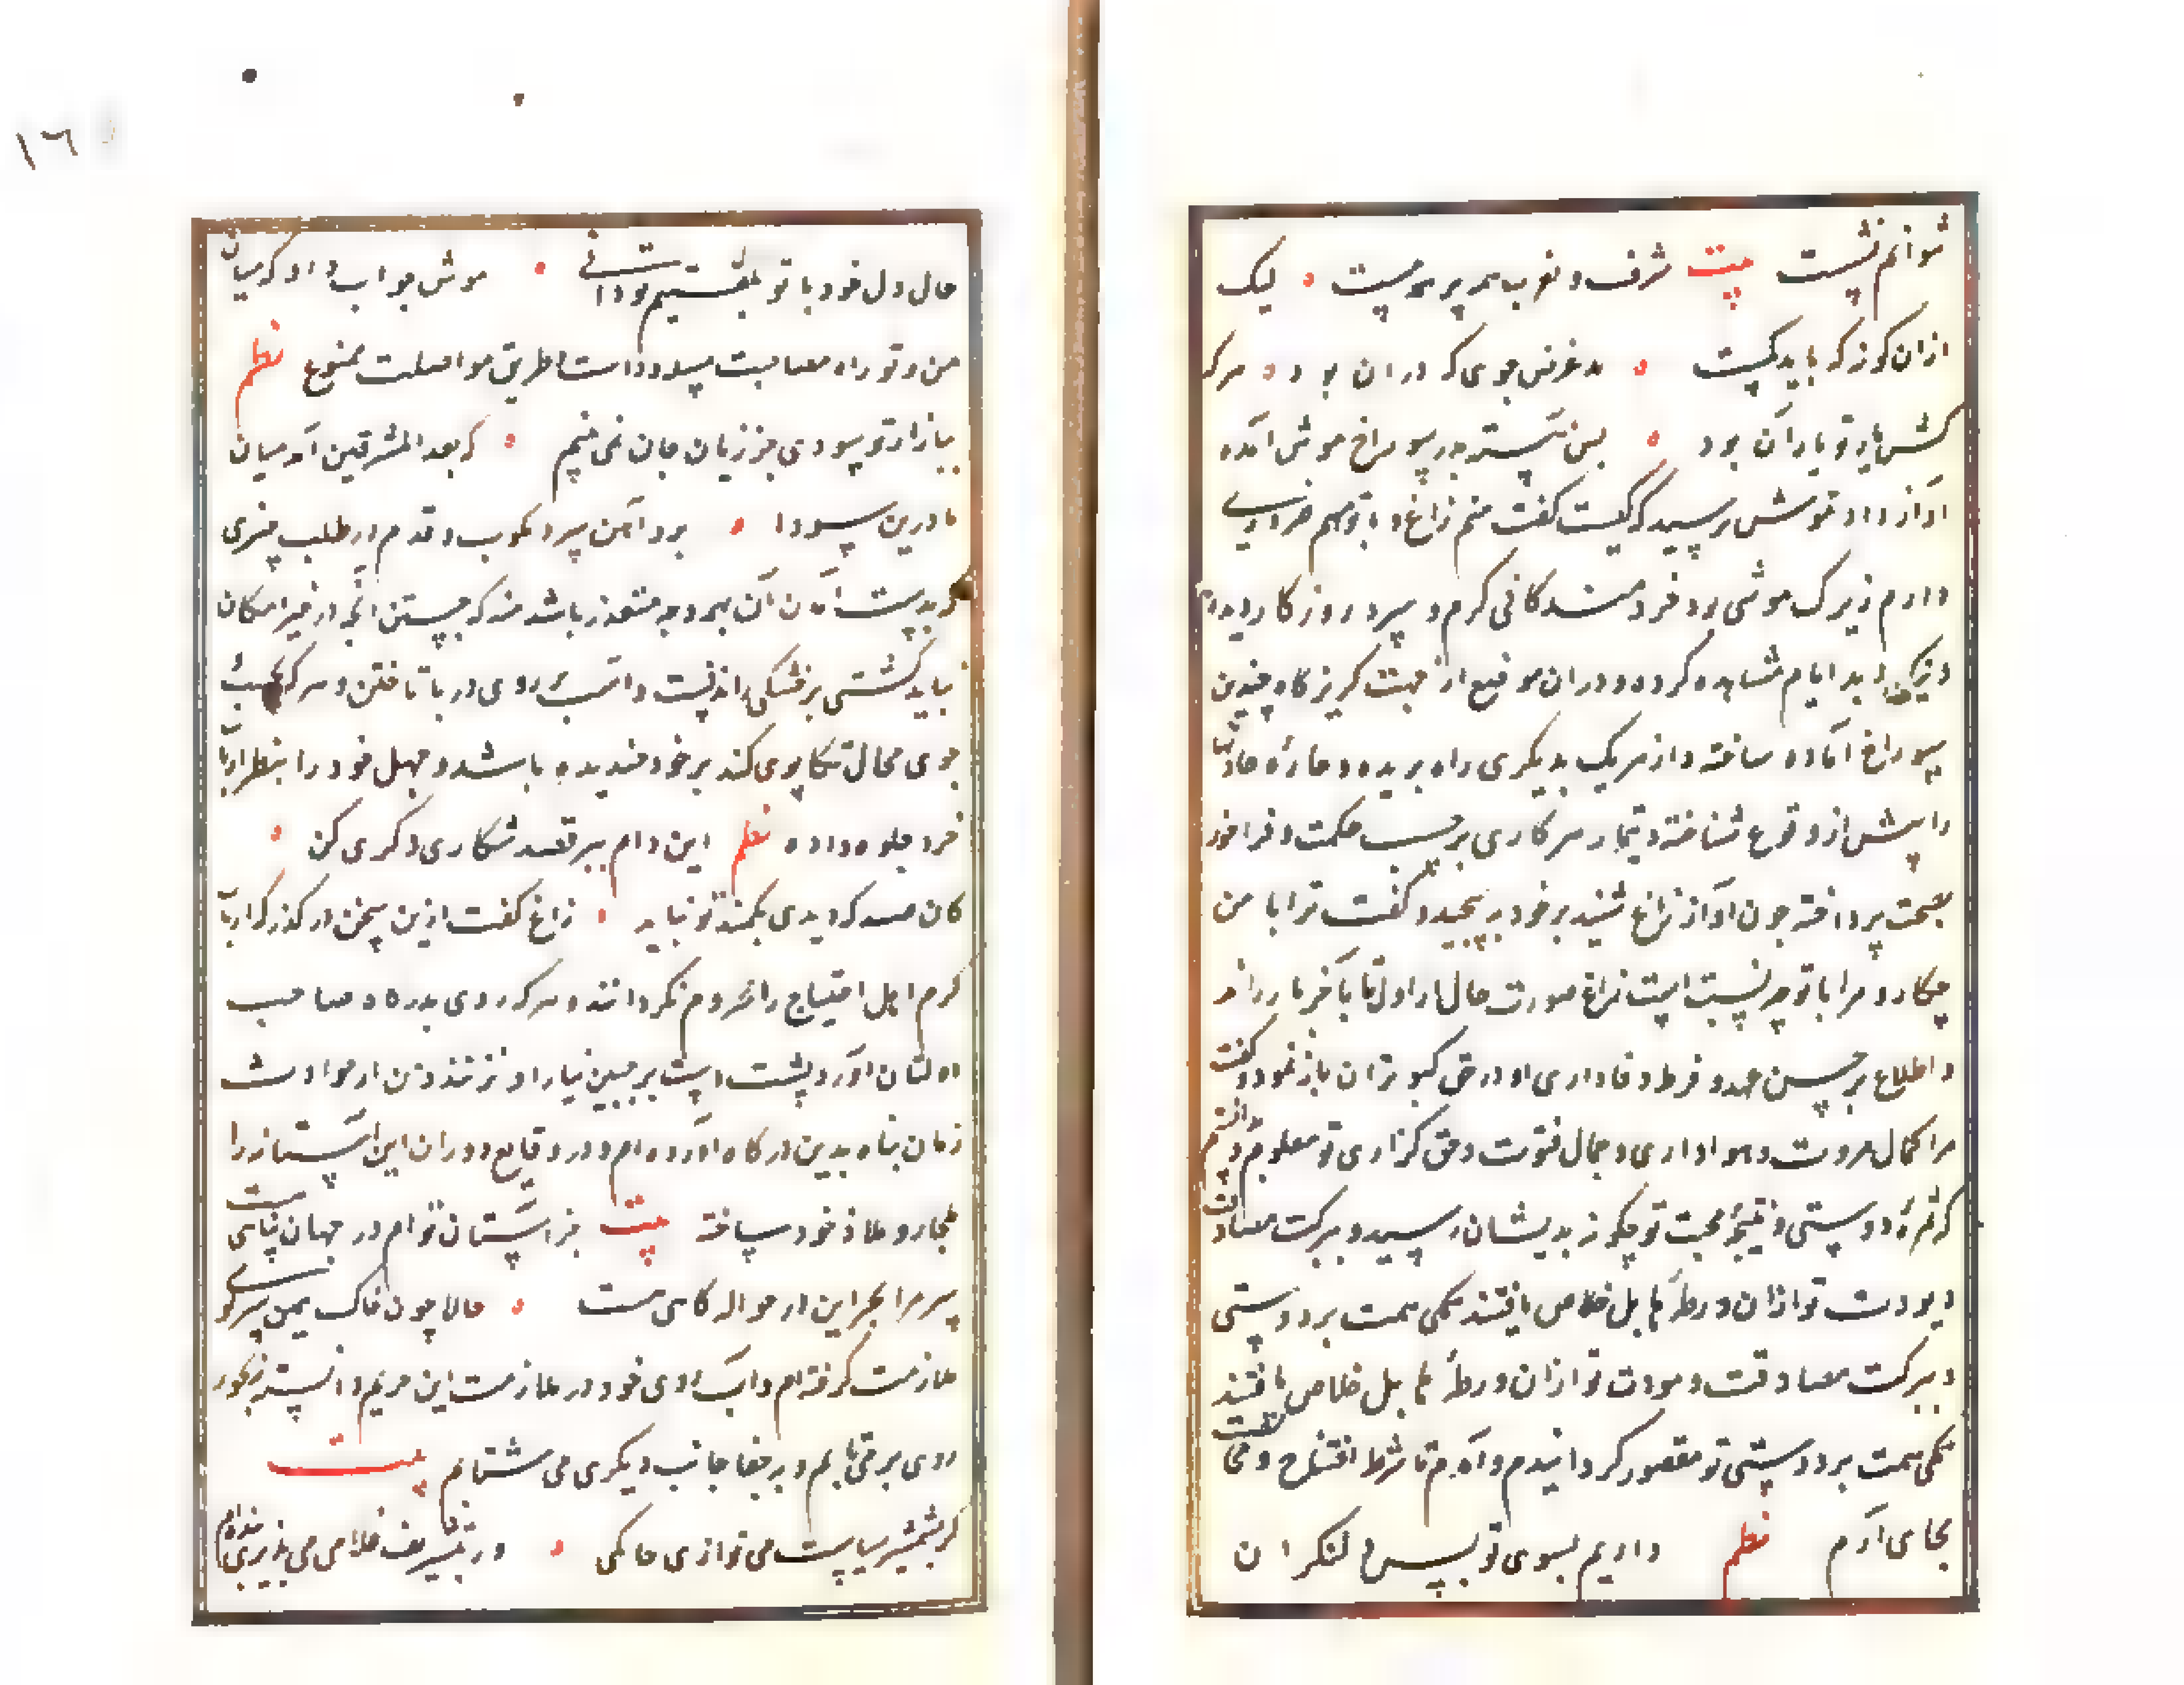 نتوانم نشست بیت شرف و نغرب همه پر مهیست لیک
ازان کونه که باید کیست مدغرض جوی که دران بود هر که
کشس یار تو یار آن بود پس نبسته بدر سوراخ موش آمده
آواز داد موش پرسید که کیست کفت منم زاغ و با تو مهم ضروری
دارم زیرک موشی بود خردمند کافی کرم و سرد روزکار دیده
و نیک و بد ایام مشاهده کرده و دران موضع از جهت کریزکاه چندین
سوراخ آماده ساخته و از هر یک بدیکری راه بریده و چاره حادثها
را پیش از وقوع شناخته و تیمار هر کاری بر حسب حکمت و فراخور
مصلحت پرداخته چون آواز زاغ شنید بر خود بپیچید و کفت ترا با من
چکار و مرا با تو چه نسبت است زاغ صورت حال از اول تا بآخر باز راند
و اطلاع بر حسن عهد و فرط وفاداری او در حق کبوتران باز نمود و کفت
مرا کمال مروت و هواداری و جمال فتوت و حق کزاری تو معلوم شد و دانستم
که ثمره دوستی و نتیجه محبت تو چکونه بدیشان رسید و ببرکت مصادقت
و مودت تو ازان ورطه هایل خلاص یافتند همکی همت بر دوستی
و ببرکت مصادقت و مودت تو ازان ورطه هایل خلاص یافتند
همکی همت بر دوستی تو مقصور کردانیدم و آمدم تا شرط افتتاح
بجای آرم نظم داریم بسوی تو بسی دل نکران
حال دل خود با تو بکفتیم تو دانی موش جواب داد که میان
من و تو راه مصاحبت مسدود است و طریق مواصلت ممنوع نظم
ببازار تو سودی جز زیان جان نمی بینم که بعد المشرقین آمد میان
ما درین سودا برو آهن سرد مکوب و قدم در طلب چیزی
که بدست آمدن آن بهمه وجه متعذر باشد منه که جستن آنچه در حیز امکان
نیاید کشتی بر خشکی راندنست و اسب بر روی دریا تاختن و هر که
جوی محال تکاپوی کند بر خود خندیده باشد و جهل خود را بنظر ارباب
خرد جلوه داده نظم این دام ببر قصد شکاری دکری کن
کان صید که دیدی بکمند تو نیاید زاغ کفت ازین سخن در کذر که ارباب
کرم اهل احتیاج را محروم نکردانند و هر که روی بدرکاه صاحب
دولتان آورد پشت دست بر جبین نیاز او نزنند و من از حوادث
زمان پناه بدین درکاه آورده ام و در وقایع دوران این آستانه را
ملجا و ملاذ خود ساخته بیت جز آستان توام در جهان پناهی نیست
سر مرا بجز این در حواله کاهی نیست حالا چون خاک یمین سر کوی
ملازمت کرفته ام و آب روی خود در ملازمت این حریم دانسته نه بجور
روی بر می تابم و نه بجفا جانب دیکری می شتابم بیت
کر بشمشیر سیاست می نوازی حاکمی ور بتشریف غلامی می پذیری بنده ام
١٦